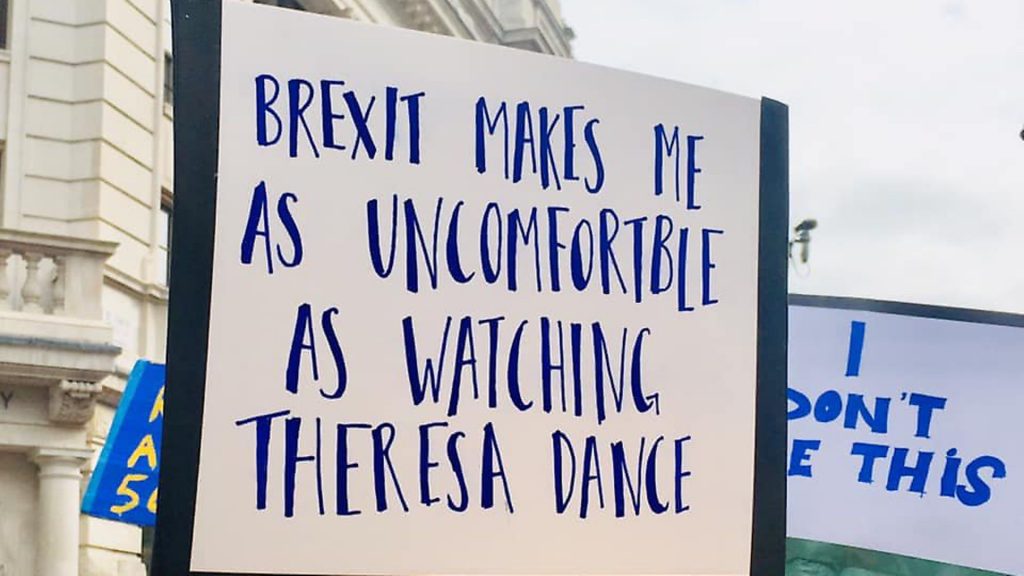 BREXIT MAKES ME
AS UNCOMFORTBLE
AS WATCHING
THERESA DANCE
I
DON'T
THiS